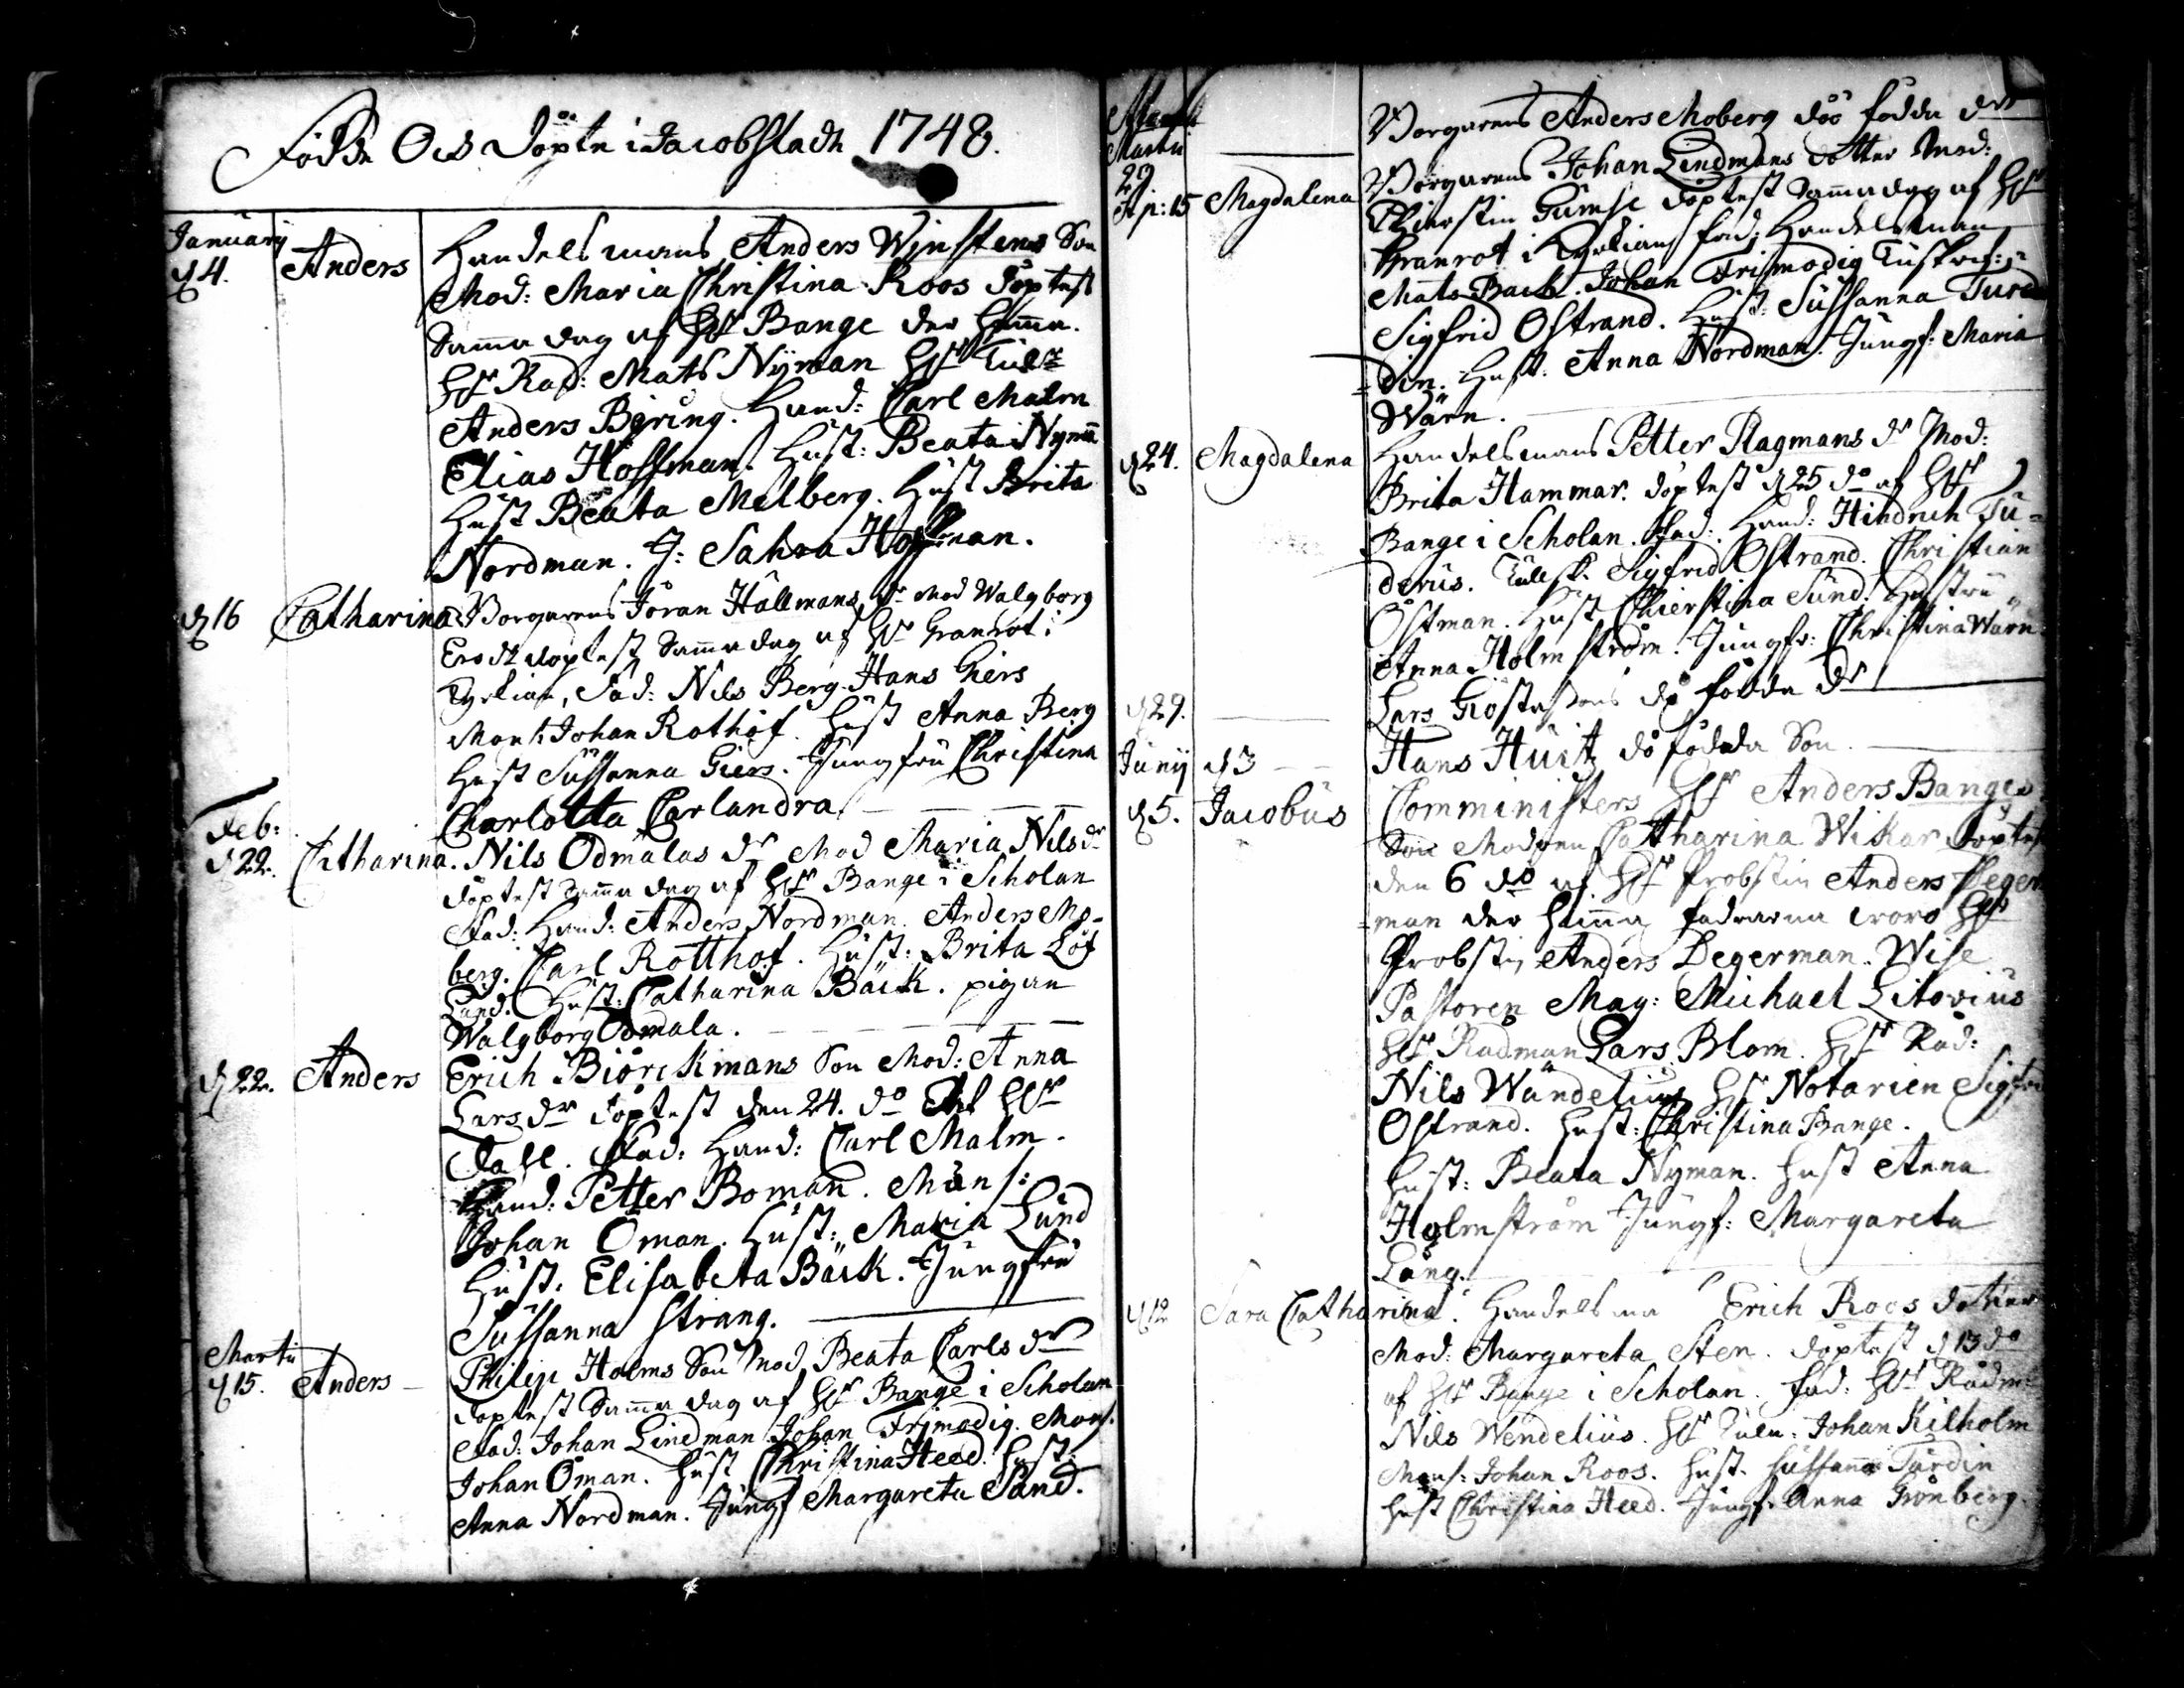 Födde Och Döpte i Jacobstadh 1748.
January
d 4. Anders Handelsmans Anders Wijnstens Son
Mod: Maria Christina Roos döptes
Samma dag af Hr Bange der hemma.
Hr Rad: Mats Nÿman Hr
Anders Bÿring. Hand: Carl Malm
Elias Hoffman. Hust: Beata Nyman
Hust Beata Melberg. Hust Brita
Nordman. J: Sahra Hoffman.
d 16 Catharina Borgarens Jöran Hällmans dr Mod Walgborg
döptest Samma dag af Hr Granrot i
Kyrkian, Fad: Nils Berg. Hans Giers
Mons: Johan Rothöf. Hust Anna Berg
Hust Sussanna Giers. Jungfru Christina
Charlotta Carlandra
Feb:
d 22. Catharina. Nils Odmalas dr Mod Maria Nilsdr
döptest Samma dag af Hr Bange i Scholan
Fad: Hand: Anders Nordman. Anders Mo-
berg. Carl Rotthof. Hust: Brita Löf
Lund. Hust: Catharina Bäck. pigan
Walgborg Odmala.
d 22. Anders Erich Biörckmans Son Mod: Anna
Larsdr döptest den 24. do Af Hr
Fahl. Fad: Hand: Carl Malm.
Hand: Petter Boman. Mons:
Johan Öman. Hust: Maria Lund
Hust: Elisabeta Bäck. Jungfru
Sussanna Strang.
Martii
d 15. Anders Philip Holms Son Mod Beata Carlsdr
Döptest Samma dag af Hr Bange i Scholan
Fad: Johan Lindman Johan Frijmodig. Mons.
Johan Öman. Hust Christina Heed. Hust:
Anna Nordman. Jungf Margareta Sand.
Martii
29 Borgarens Anders Moberg döö födda dr
Ap: 15 Magdalena Borgarens Johan Lindmans dotter Mod:
Chierstin Gumse döptest Samma dag af Hr
Granrot i Kyrkian fad: Handelsman
Mats Back. Johan Frismodig
Sigfrid Östrand. Hust: Sussanna Tur
=din. Hust. Anna Nordman. Jungf: Maria
Wärn.
d 24. Magdalena Handelsmans Petter Hagmans dr Mod:
Brita Hammar. döptest d 25 do af Hr
Bange i Scholan. Fad: Hand: Hindrich Tu-
derus. Sigfrid Östrand. Christian
Östman. Hust Chierstina Sund. Hustru
Anna Holmström. Jungfr: Christina Wärn
d 29. Lars Giöstassons dö födda dr
Junÿ d 3 Hans Huitz dö födda Son
d 5. Jacobus Comministers Hr Anders Banges
Son Modren Catharina Wikar Döptest
den 6 do af Hr Probsten Anders Deger
=man der hemma fadrarna woro Hr
Probsten Anders Degerman. Wise
Pastoren Mag: Michael Litovius
Hr Radman Lars Blom. Hr Rad:
Nils Wändelius Hr Notarien Sigfri
Östrand. Hust: Christina Bange.
Hust: Beata Nyman. Hust Anna
Holmström Jungf: Margareta
Lång.
d 12 Sara Catharina. Handelsma Erich Roos dotter
Mod: Margareta Sten. döptest d 13 do
af Hr Bange i Scholan. Fad: Hr Rådm:
Nils Wendelius. Hr Johan Kilholm
Mons: Johan Roos. Hust. Sussanna Turdin
Hust Christina Heed. Jungf. Anna Grönberg.